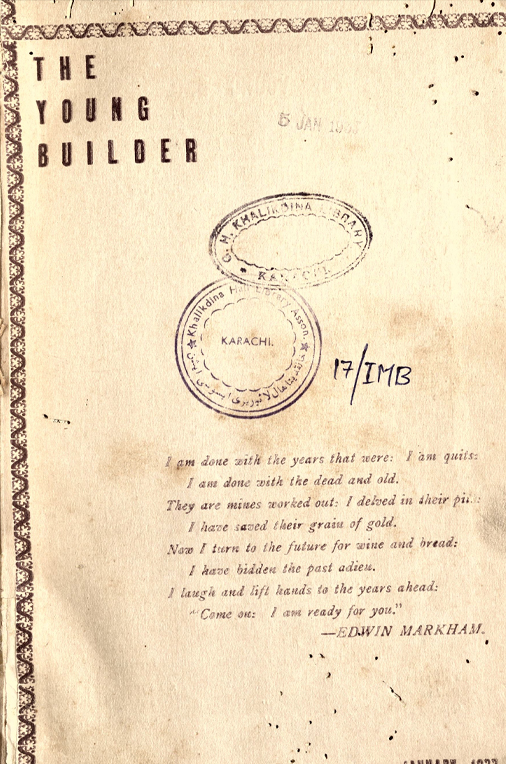 THE
YOUNG
BUILDER
5 JAN
G. H. KHALIKDINA LIBRARY
KARACHI.
Khalikdina Hall Library Asson.
KARACHI.
17/IMB
I am done with the years that were: I am quits:
I am done with the dead and old.
They are mines worked out: I delved in their
I have saved their grain of gold.
Now I turn to the future for wine and bread:
I have bidden the past adieu.
I laugh and lift hands to the years ahead:
"Come on: I am ready for you."
—EDWIN MARKHAM.
JANUARY